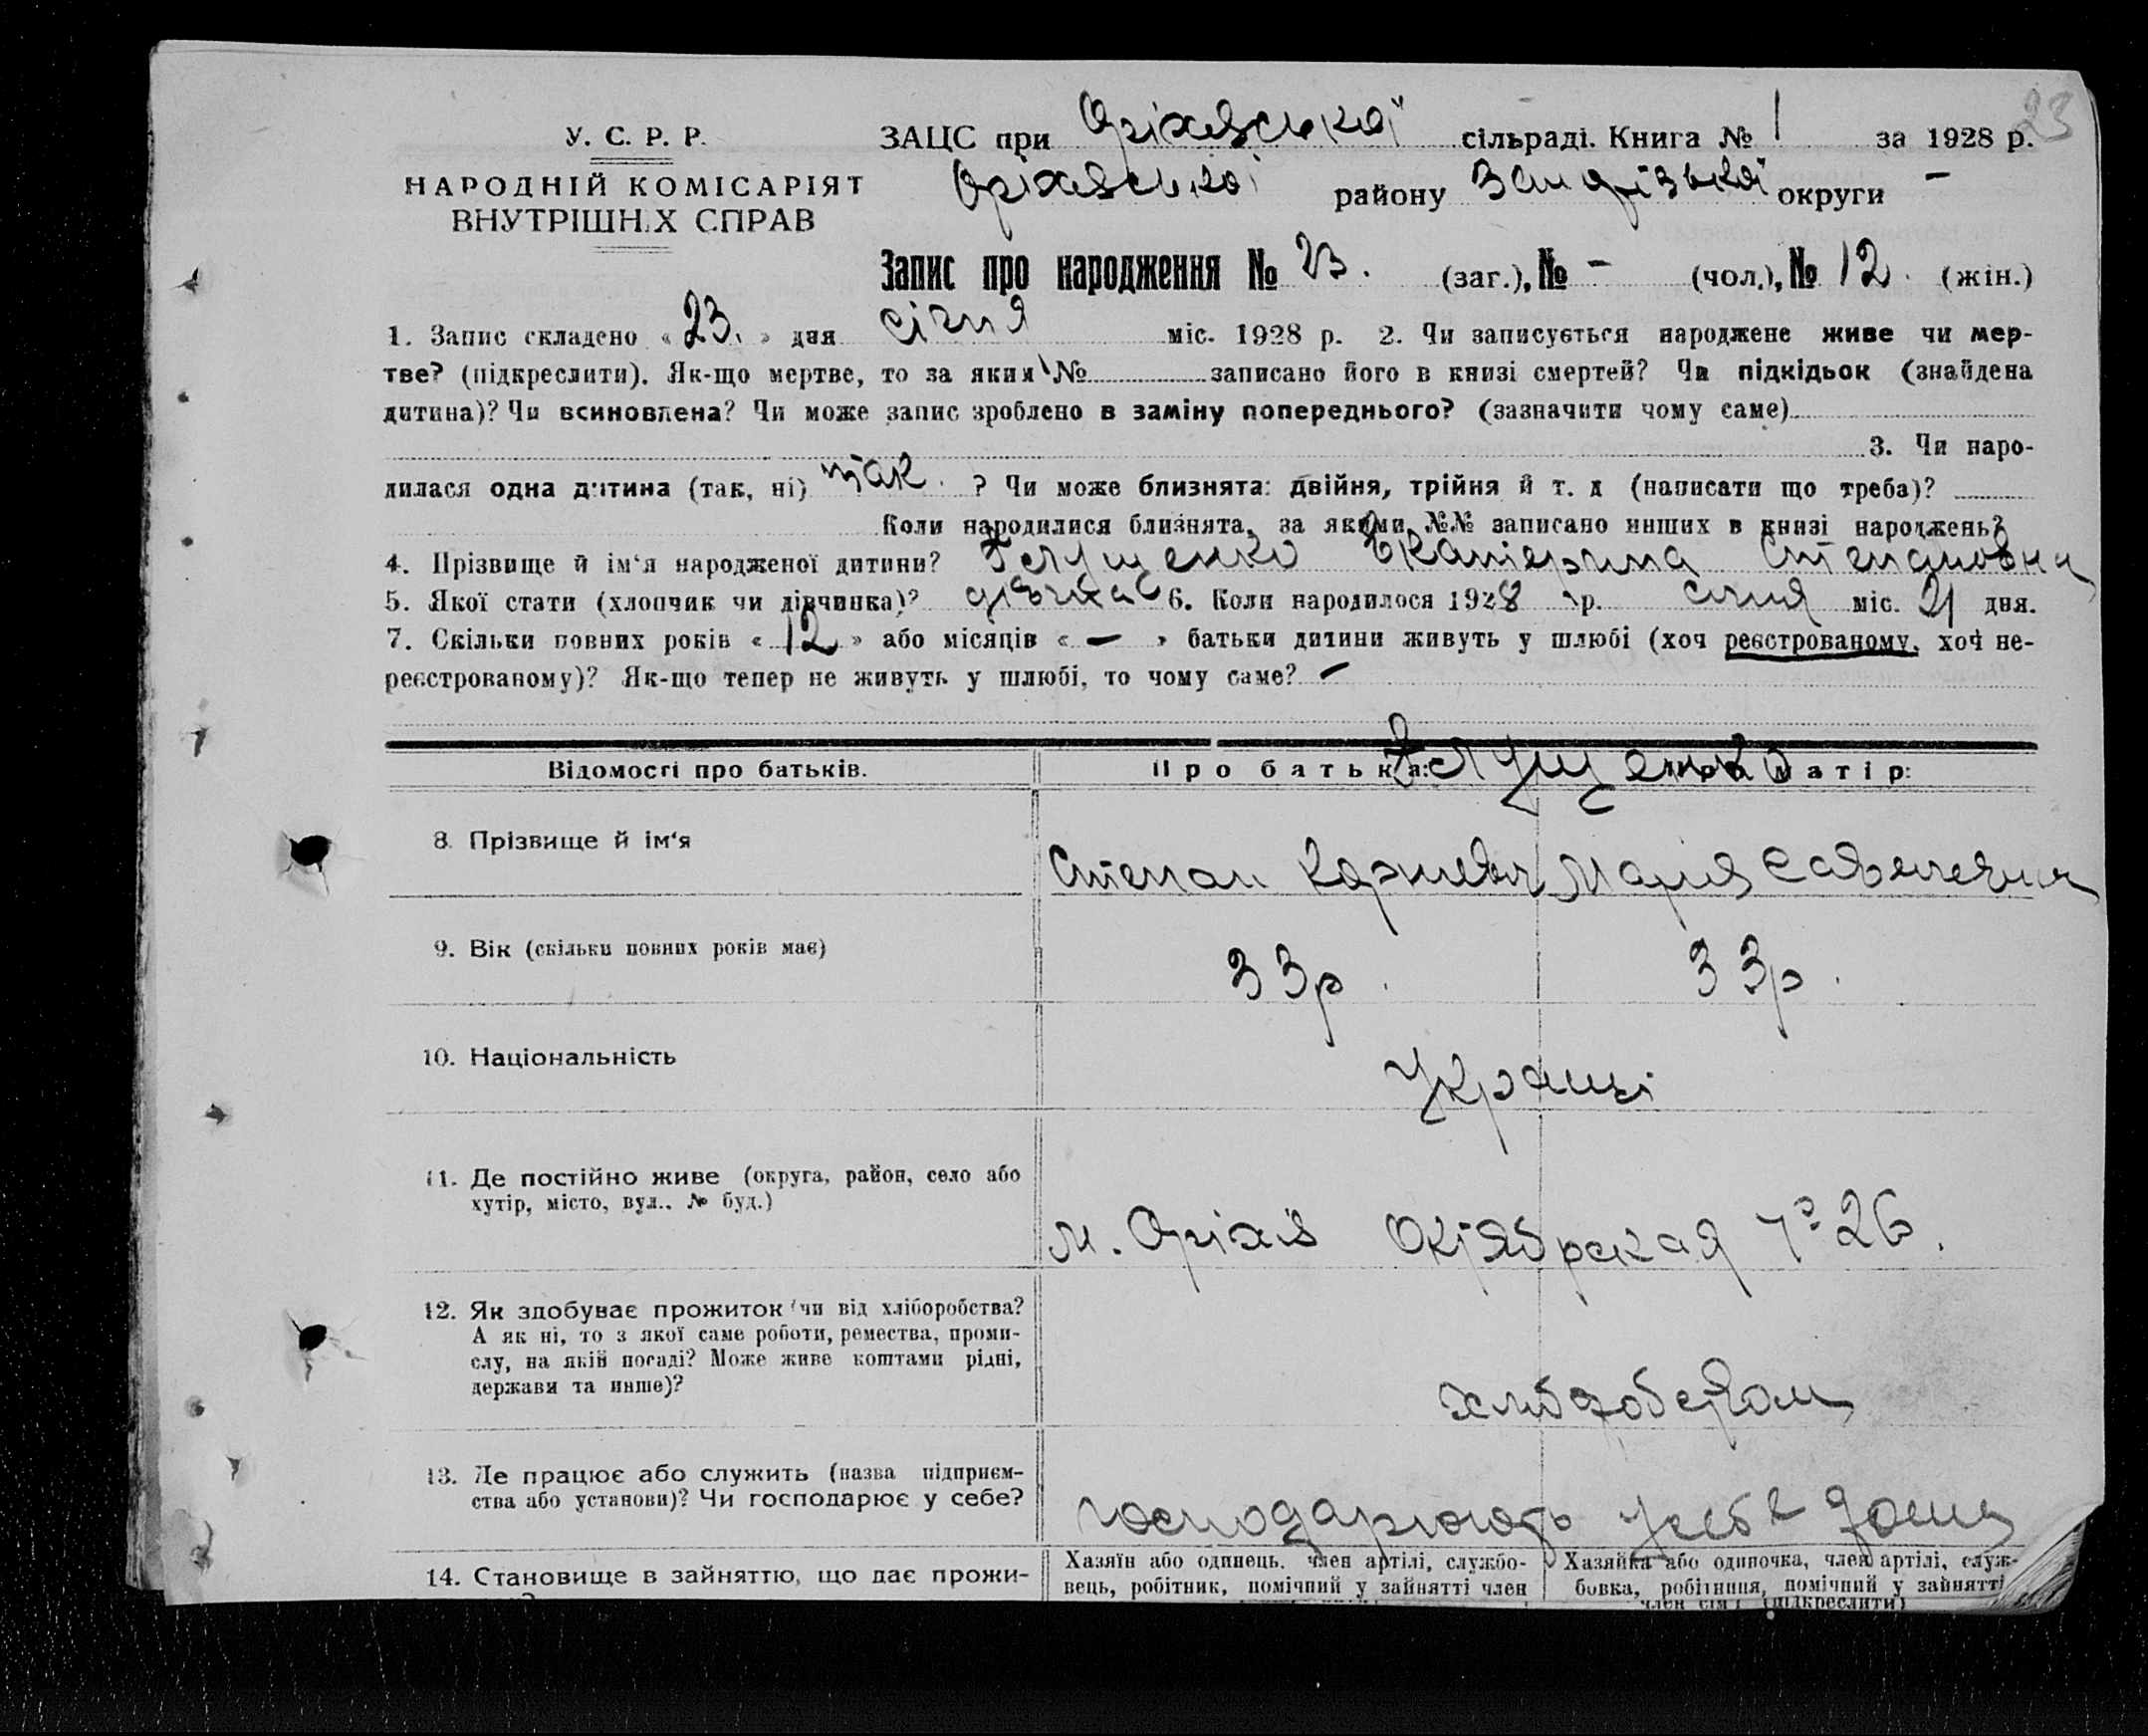 23
У. С. Р. Р.
НАРОДНІЙ КОМІСАРІЯТ
ВНУТРІШНіХ СПРАВ
ЗАЦС при Оріхівської сільраді. Книга № 1 за 1928 р.
Оріхівської району Запорізької округи –
Запис про народження № 23. (заг.), № – (чол.), № 12. (жін.)
1. Запис складено «23.» дня січня міс. 1928 р. 2. Чи записується народжене живе чи мер-
тве? (підкреслити). Як-що мертве, то за яким № записано його в книзі смертей? Чи підкідьок (знайдена
дитина)? Чи всиновлена? Чи може запис зроблено в заміну попереднього? (зазначити чому саме)
3. Чи наро-
дилася одна дитина (так, ні) так. ? Чи може близнята: двійня, трійня й т. д (написати що треба)?
Коли народилися близнята, за якими №№ записано инших в книзі народжень?
4. Прізвище й ім'я народженої дитини? Екатерина Степановна
5. Якої стати (хлопчик чи дівчинка)? дівчина 6. Коли народилося 1928 р. січня міс. 21 дня.
7. Скільки повних років «12» або місяців «–» батьки дитини живуть у шлюбі (хоч реєстрованому, хоч не-
реєстрованому)? Як-що тепер не живуть у шлюбі, то чому саме? –
Відомості про батьків. Про батька: Про матір:
8. Прізвище й ім'я
Степан Мария
9. Вік (скільки повних років має)
33р. 33р.
10. Національність
Українці
11. Де постійно живе (округа, район, село або
хутір, місто, вул.. № буд.)
м. Оріхів Октябрская 26.
12. Як здобуває прожиток (чи від хліборобства?
А як ні, то з якої саме роботи, ремества, проми-
слу, на якій посаді? Може живе коштами рідні,
держави та инше)?
хліборобством
13. Де працює або служить (назва підприєм-
ства або установи)? Чи господарює у себе?
господарюють у себе дома
14. Становище в зайняттю, що дає прожи-
Хазяїн або одинець. член артілі, службо-
вець, робітник, помічний у зайнятті член
Хазяйка або одиночка, член артілі, служ-
бовка, робітниця, помічний у зайнятті
член сім'ї (підкреслити)